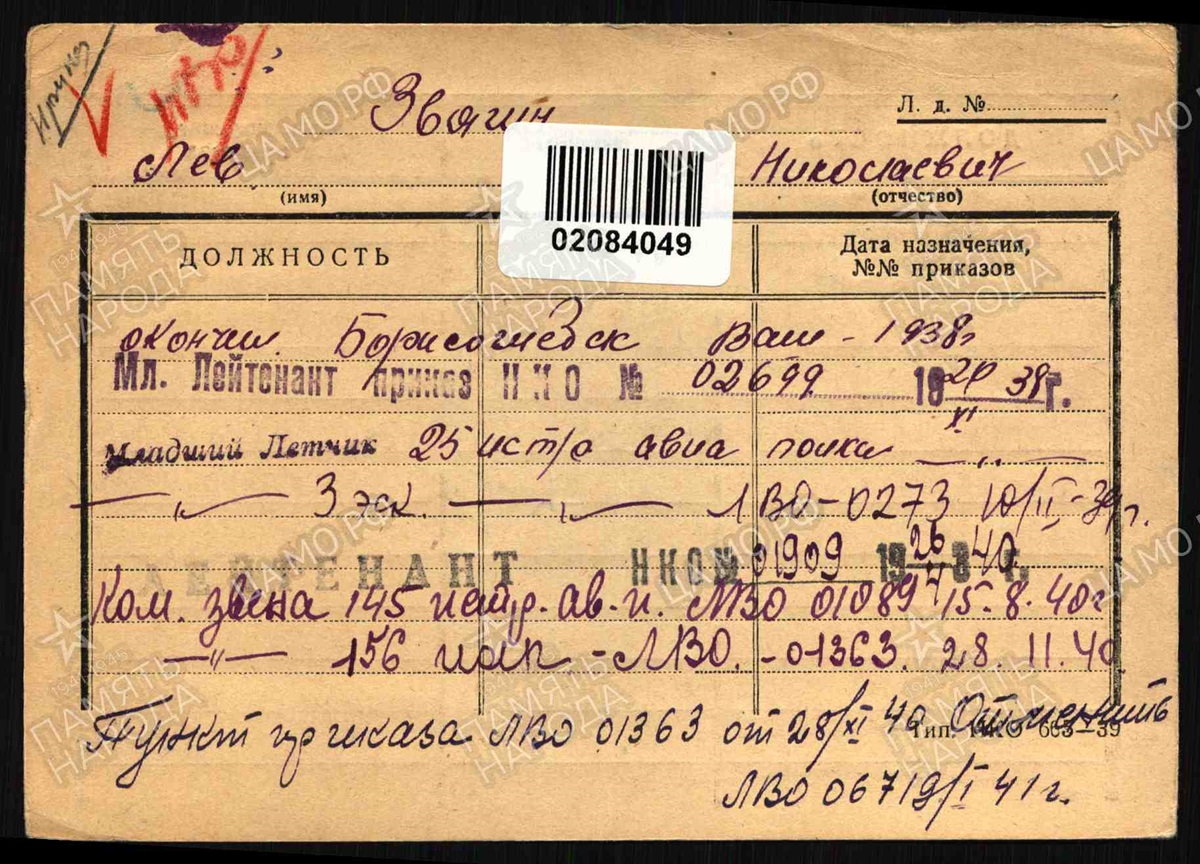 Звягин
Л. д. №
Лев Николаевич
(имя) (отчество)
02084049
ДОЛЖНОСТЬ
Дата назначения,
№№ приказов
окончил Борисоглебск ваш - 1938г
Мл. Лейтенант приказ НКО № 02699 19 38 г.
XI
Младший Летчик 25 истр авиа полка — „ —
— „ — 3 эск. — „ — ЛВО-0273 10/II-39г.
ЛЕЙТЕНАНТ НКО № 01909 19 26/4 40 г.
Ком. звена 145 истр. ав. п. ЛВО 01089 15.8.40г
—"— 156 иап -ЛВО. -01363. 28.11.40
Пункт приказа ЛВО 01363 от 28/XI 40 Отменить
Тип. НКО 663—39
ЛВО 067 19/I 41 г.
ЦАМО РФ
ПАМЯТЬ НАРОДА